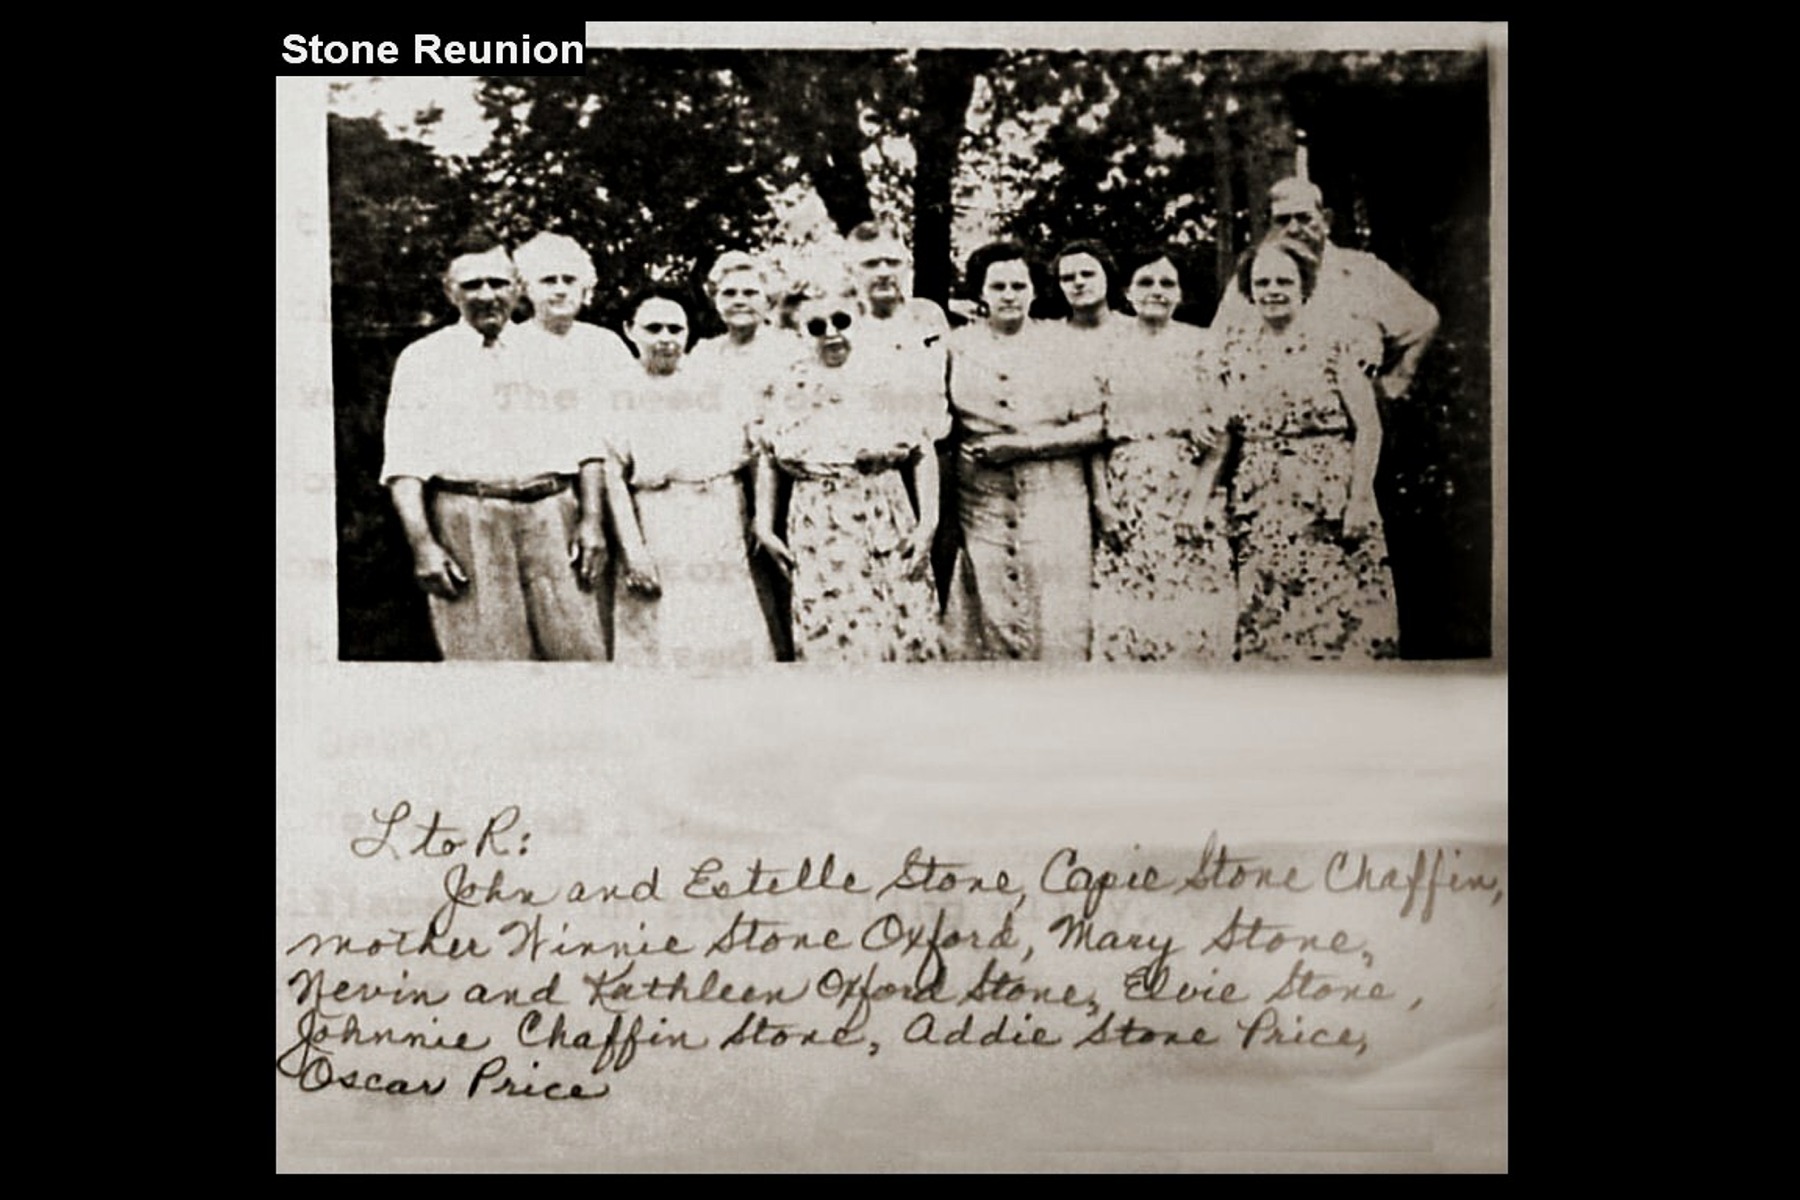 Stone Reunion
The need
L to R:
John and Estelle Stone, Capie Stone Chaffin,
mother Winnie Stone Oxford, Mary Stone,
Nevin and Kathleen Oxford Stone, Elvie Stone,
Johnnie Chaffin Stone, Addie Stone Price,
Oscar Price